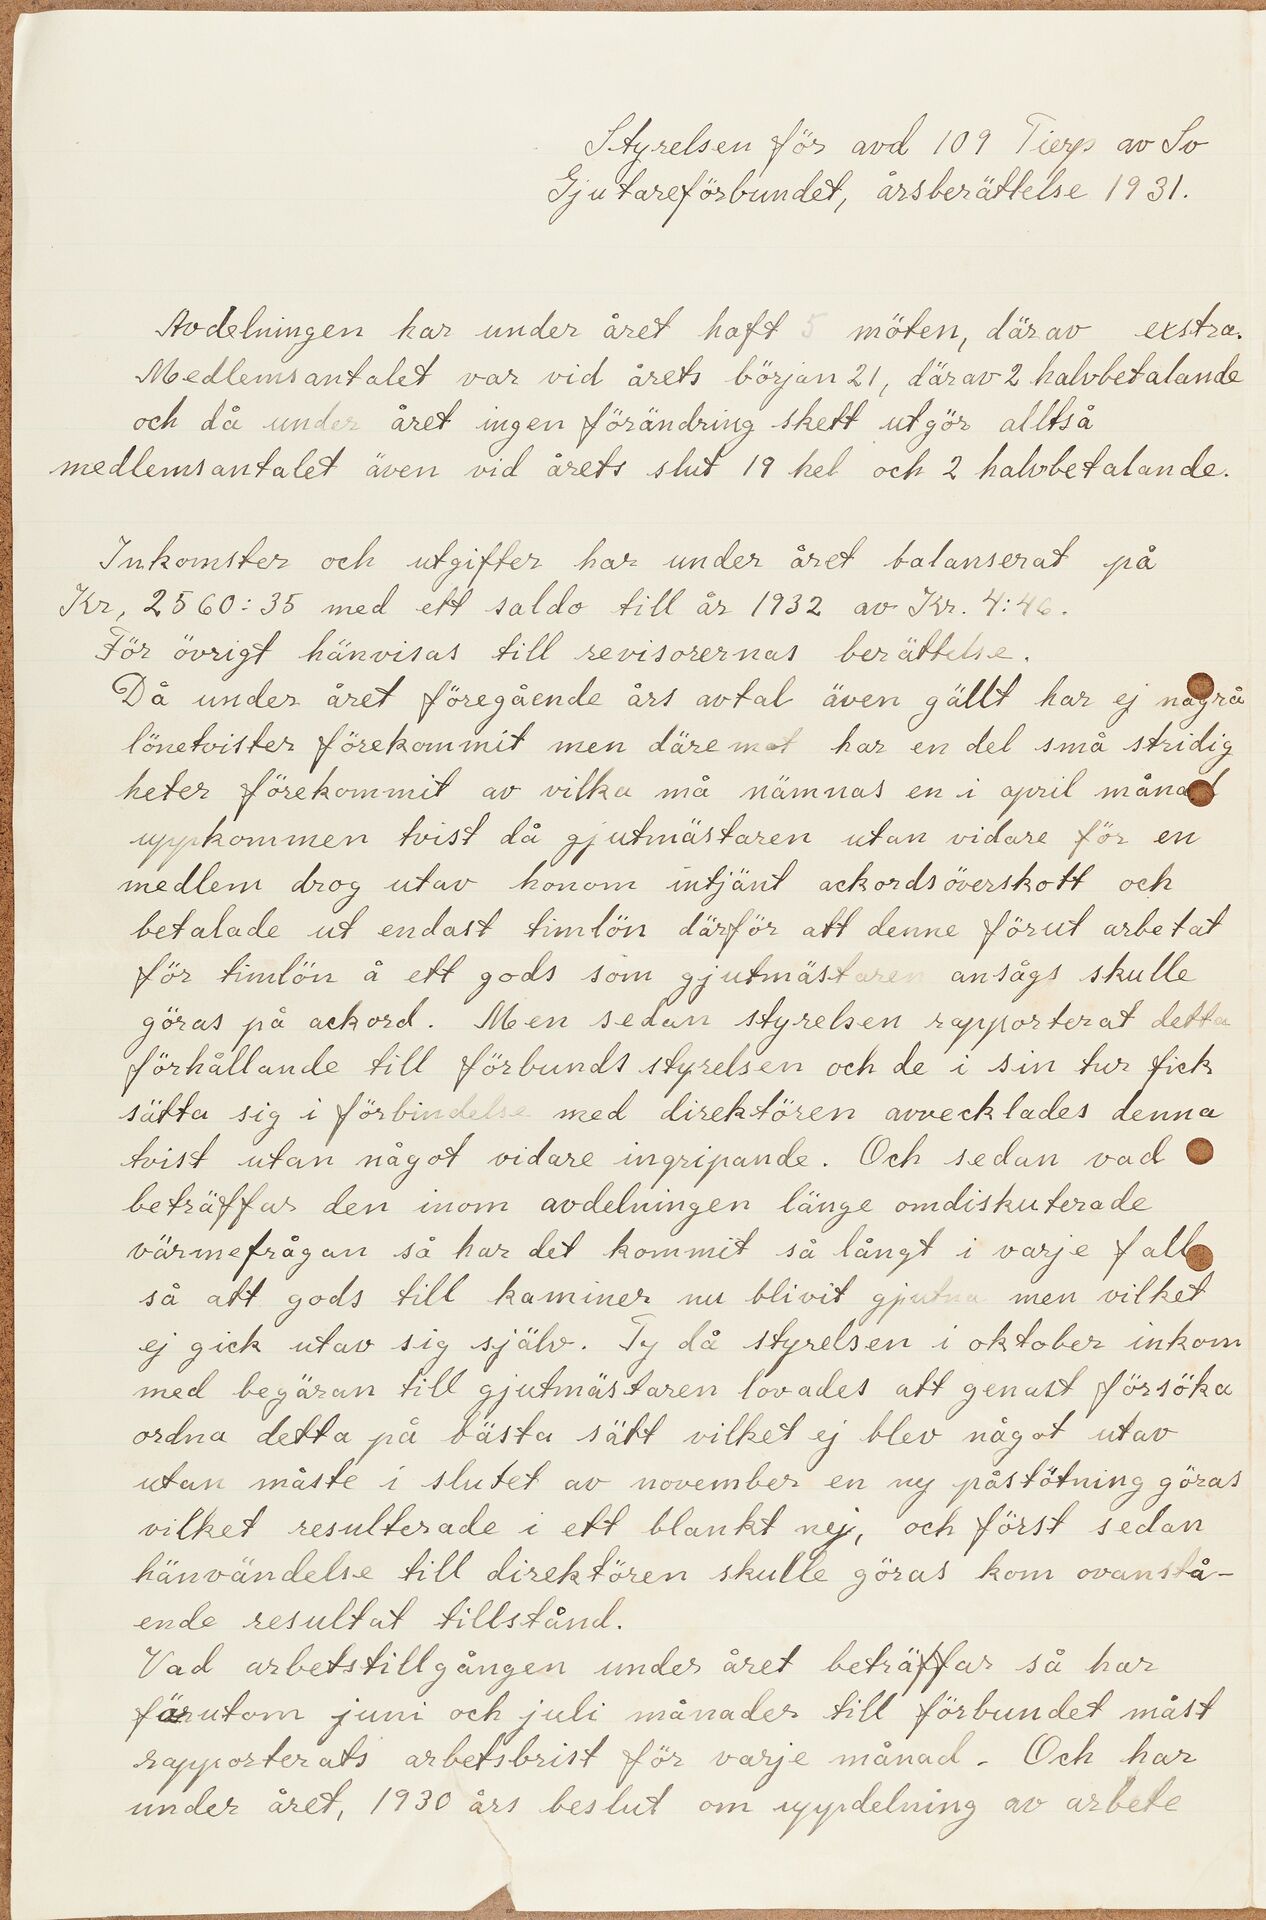 Styrelsen för avd 109 Tierp av Sv
Gjutareförbundet, årsberättelse 1931.
Avdelningen har under året haft 5 möten, därav extra.
Medlemsantalet var vid årets början 21, därav 2 halvbetalande
och då under året ingen förändring skett utgör alltså
medlemsantalet även vid årets slut 19 hel och 2 halvbetalande.
Inkomster och utgifter har under året balanserat på
Kr, 2560:35 med ett saldo till år 1932 av Kr. 4:46.
För övrigt hänvisas till revisorernas berättelse.
Då under året föregående års avtal även gällt har ej några
lönetvister förekommit men däremot har en del små stridig
heter förekommit av vilka må nämnas en i april månad
uppkommen tvist då gjutmästaren utan vidare för en
medlem drog utav honom intjänt ackordsöverskott och
betalade ut endast timlön därför att denne förut arbetat
för timlön å ett gods som gjutmästaren ansågs skulle
göras på ackord. Men sedan styrelsen rapporterat detta
förhållande till förbunds styrelsen och de i sin tur fick
sätta sig i förbindelse med direktören avvecklades denna
tvist utan något vidare ingripande. Och sedan vad
beträffar den inom avdelningen länge omdiskuterade
värmefrågan så har det kommit så långt i varje fall
så att gods till kaminer nu blivit gjutna men vilket
ej gick utav sig själv. Ty då styrelsen i oktober inkom
med begäran till gjutmästaren lovades att genast försöka
ordna detta på bästa sätt vilket ej blev något utav
utan måste i slutet av november en ny påstötning göras
vilket resulterade i ett blankt nej, och först sedan
hänvändelse till direktören skulle göras kom ovanstå-
ende resultat tillstånd.
Vad arbetstillgången under året beträffar så har
förutom juni och juli månader till förbundet måst
rapporterats arbetsbrist för varje månad. Och har
under året, 1930 års beslut om uppdelning av arbete